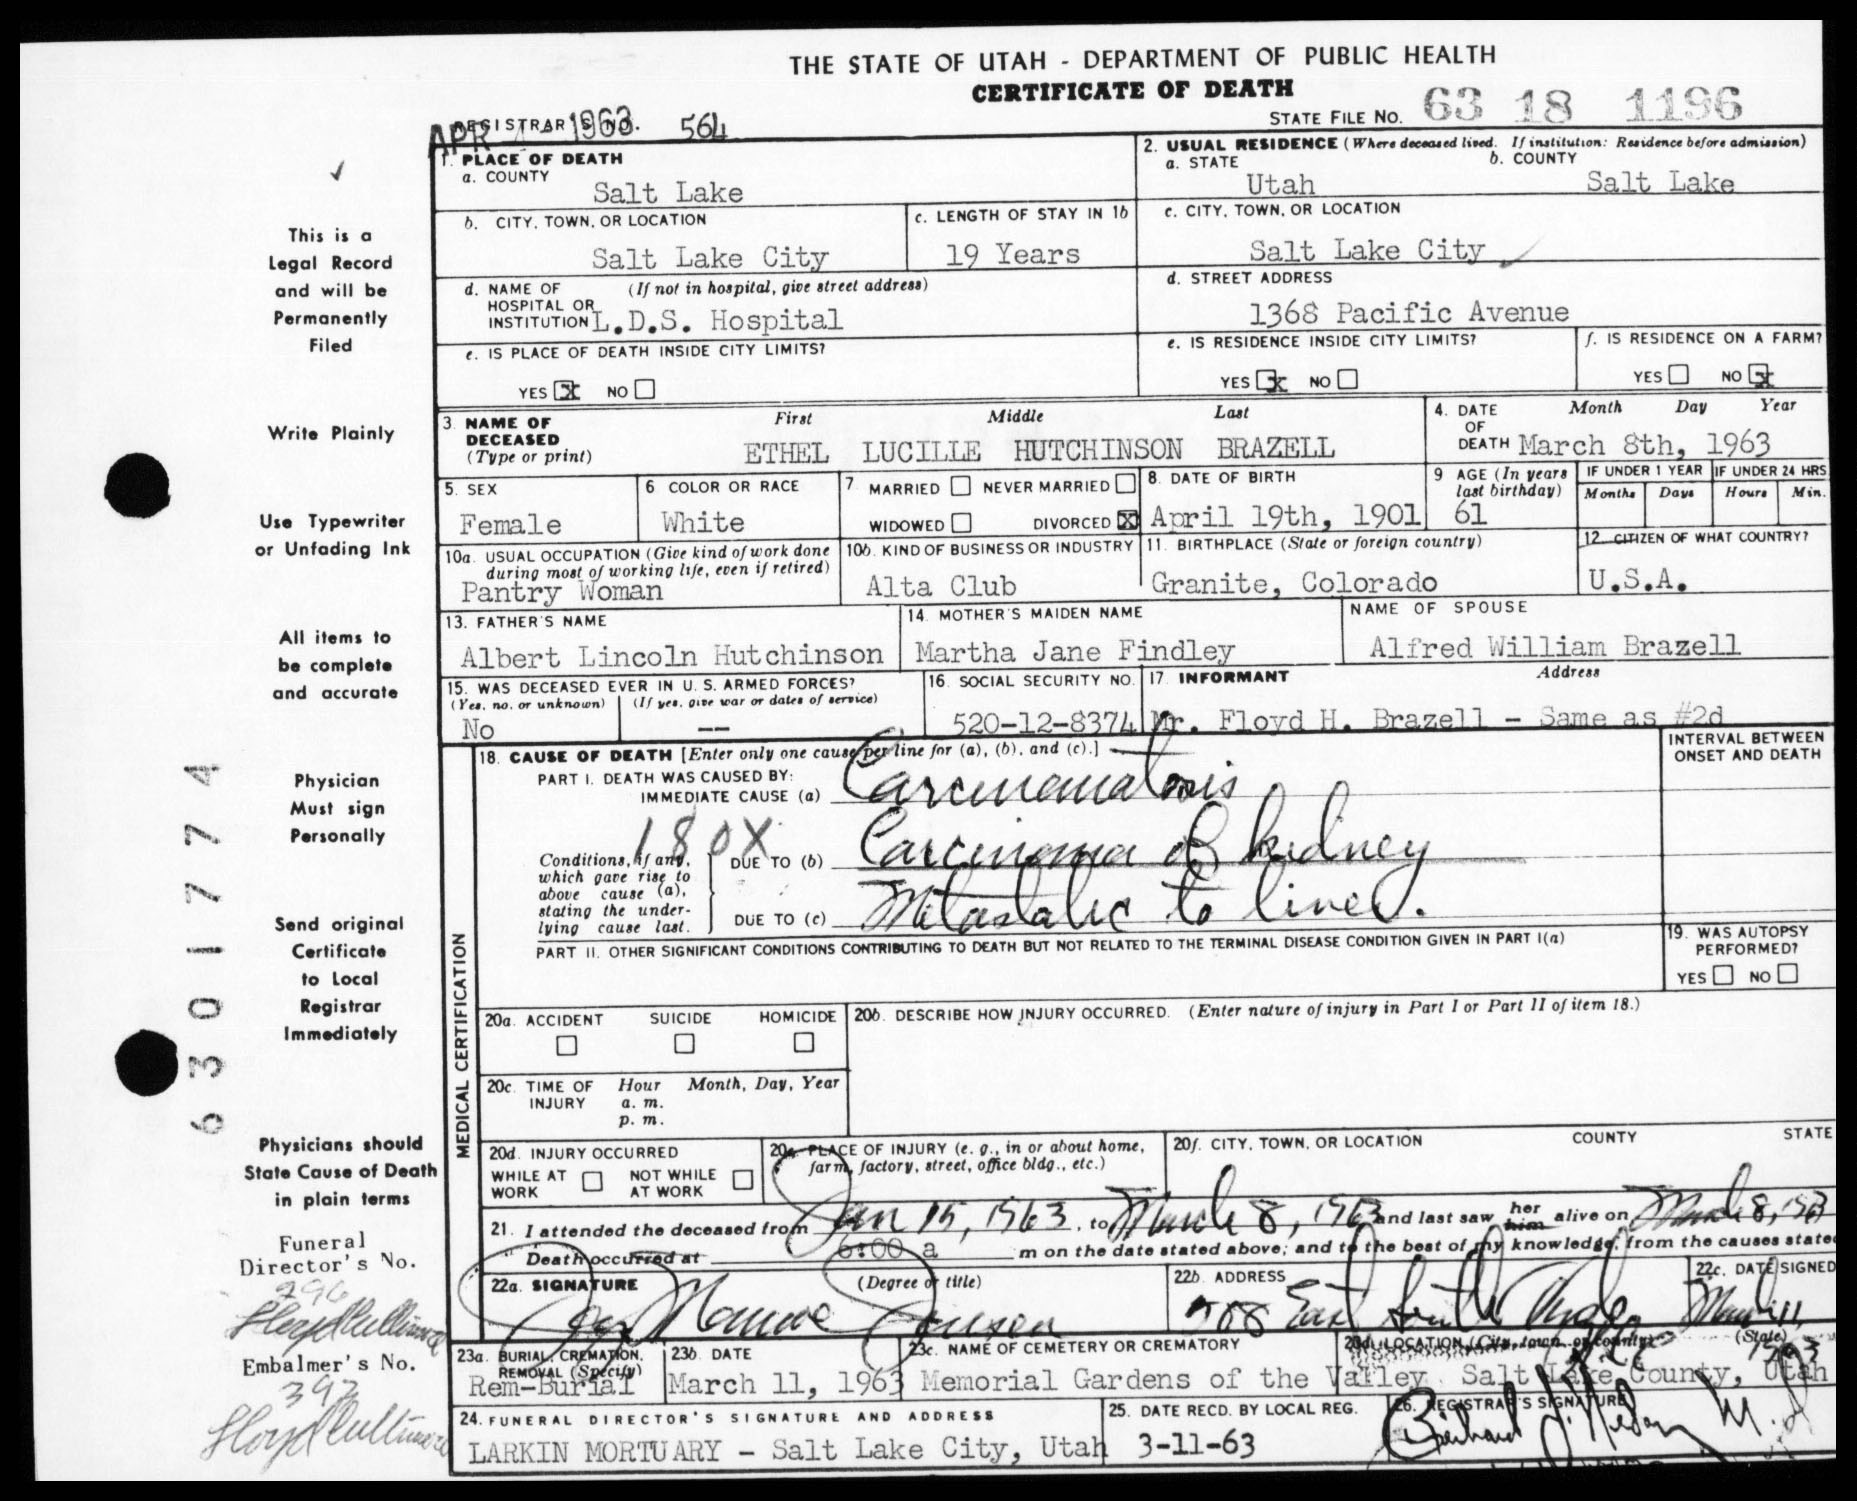 THE STATE OF UTAH - DEPARTMENT OF PUBLIC HEALTH
CERTIFICATE OF DEATH
STATE FILE No. 63 18 1196
REGISTRAR'S NO. 564
APR 4 - 1963
1. PLACE OF DEATH
a. COUNTY
Salt Lake
2. USUAL RESIDENCE (Where deceased lived. If institution: Residence before admission)
a. STATE b. COUNTY
Utah Salt Lake
b. CITY, TOWN, OR LOCATION
Salt Lake City
c. LENGTH OF STAY IN 1b
19 Years
c. CITY, TOWN, OR LOCATION
Salt Lake City
d. NAME OF HOSPITAL OR INSTITUTION (If not in hospital, give street address)
L.D.S. Hospital
d. STREET ADDRESS
1368 Pacific Avenue
e. IS PLACE OF DEATH INSIDE CITY LIMITS?
YES X NO
e. IS RESIDENCE INSIDE CITY LIMITS?
YES X NO
f. IS RESIDENCE ON A FARM?
YES NO X
3. NAME OF DECEASED (Type or print)
First Middle Last
ETHEL LUCILLE HUTCHINSON BRAZELL
4. DATE OF DEATH
Month Day Year
March 8th, 1963
5. SEX
Female
6 COLOR OR RACE
White
7. MARRIED NEVER MARRIED
WIDOWED DIVORCED X
8. DATE OF BIRTH
April 19th, 1901
9 AGE (In years last birthday)
61
IF UNDER 1 YEAR IF UNDER 24 HRS.
Months Days Hours Min.
10a. USUAL OCCUPATION (Give kind of work done during most of working life, even if retired)
Pantry Woman
10b. KIND OF BUSINESS OR INDUSTRY
Alta Club
11. BIRTHPLACE (State or foreign country)
Granite, Colorado
12. CITIZEN OF WHAT COUNTRY?
U.S.A.
13. FATHER'S NAME
Albert Lincoln Hutchinson
14. MOTHER'S MAIDEN NAME
Martha Jane Findley
NAME OF SPOUSE
Alfred William Brazell
15. WAS DECEASED EVER IN U.S. ARMED FORCES?
(Yes, no, or unknown) (If yes, give war or dates of service)
No --
16. SOCIAL SECURITY NO.
520-12-8374
17. INFORMANT Address
Mr. Floyd H. Brazell - Same as #2d
18. CAUSE OF DEATH [Enter only one cause per line for (a), (b), and (c).]
INTERVAL BETWEEN ONSET AND DEATH
PART I. DEATH WAS CAUSED BY:
IMMEDIATE CAUSE (a) Carcinomatosis
180X
Conditions, if any, which gave rise to above cause (a), stating the underlying cause last.
DUE TO (b) Carcinoma of kidney
DUE TO (c) Metastatic to liver.
PART II. OTHER SIGNIFICANT CONDITIONS CONTRIBUTING TO DEATH BUT NOT RELATED TO THE TERMINAL DISEASE CONDITION GIVEN IN PART I(a)
19. WAS AUTOPSY PERFORMED?
YES NO
MEDICAL CERTIFICATION
20a. ACCIDENT SUICIDE HOMICIDE
20b. DESCRIBE HOW INJURY OCCURRED. (Enter nature of injury in Part I or Part II of item 18.)
20c. TIME OF INJURY Hour Month, Day, Year
a. m.
p. m.
20d. INJURY OCCURRED
WHILE AT WORK NOT WHILE AT WORK
20e. PLACE OF INJURY (e. g., in or about home, farm, factory, street, office bldg., etc.)
20f. CITY, TOWN, OR LOCATION COUNTY STATE
21. I attended the deceased from Jan 15, 1963, to March 8, 1963 and last saw her him alive on March 8, 1963
Death occurred at 6:00 a m on the date stated above; and to the best of my knowledge, from the causes state
22a. SIGNATURE (Degree or title)
Monroe
22b. ADDRESS
East South Temple
22c. DATE SIGNED
March 11, 1963
23a. BURIAL, CREMATION, REMOVAL (Specify)
Rem-Burial
23b. DATE
March 11, 1963
23c. NAME OF CEMETERY OR CREMATORY
Memorial Gardens of the Valley
23d. LOCATION (City, town, or county) (State)
Salt Lake County, Utah
24. FUNERAL DIRECTOR'S SIGNATURE AND ADDRESS
LARKIN MORTUARY - Salt Lake City, Utah
25. DATE RECD. BY LOCAL REG.
3-11-63
26. REGISTRAR'S SIGNATURE
M.D.
This is a
Legal Record
and will be
Permanently
Filed
Write Plainly
Use Typewriter
or Unfading Ink
All items to
be complete
and accurate
Physician
Must sign
Personally
Send original
Certificate
to Local
Registrar
Immediately
Physicians should
State Cause of Death
in plain terms
Funeral
Director's No.
296
Floyd Cullimore
Embalmer's No.
392
Floyd Cullimore
6301774